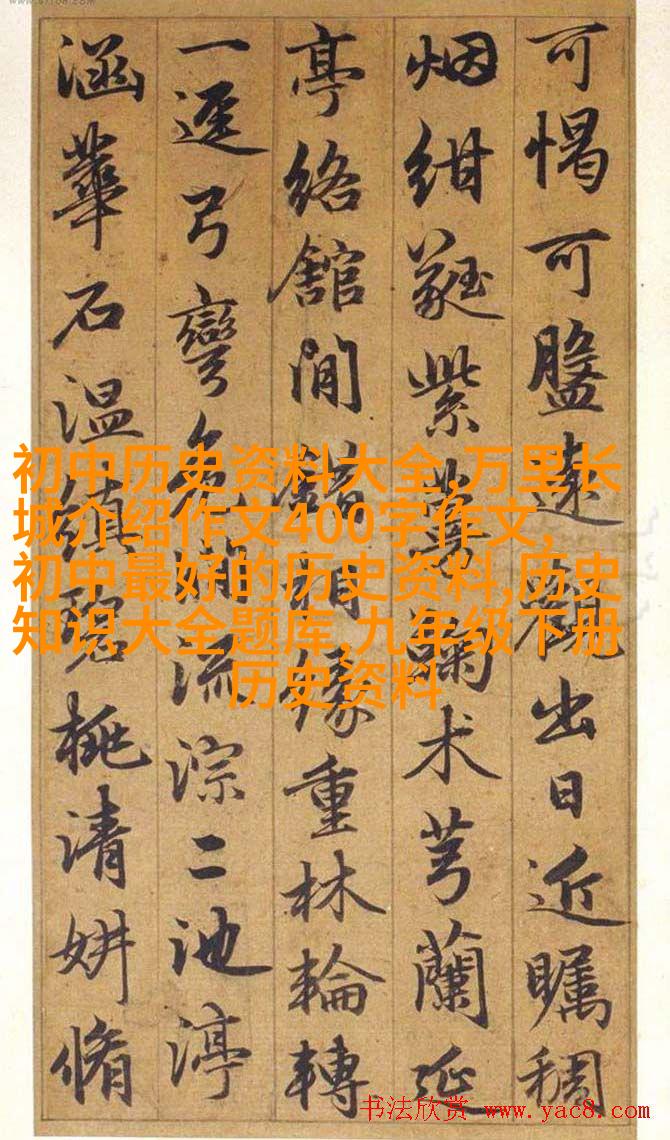 初中历史资料大全,万里长
城介绍作文400字作文,
初中最好的历史资料,历史
知识大全题库,九年级下册
历史资料
可愒可盤遠出日近矚稠
烟紺蕤紫术芎蘭延
亭絡館間錯相緣重林輪轉
一逕弓彎流淙二池渟
涵華石温縝桃清妍脩
书法欣赏 www.yac8.com